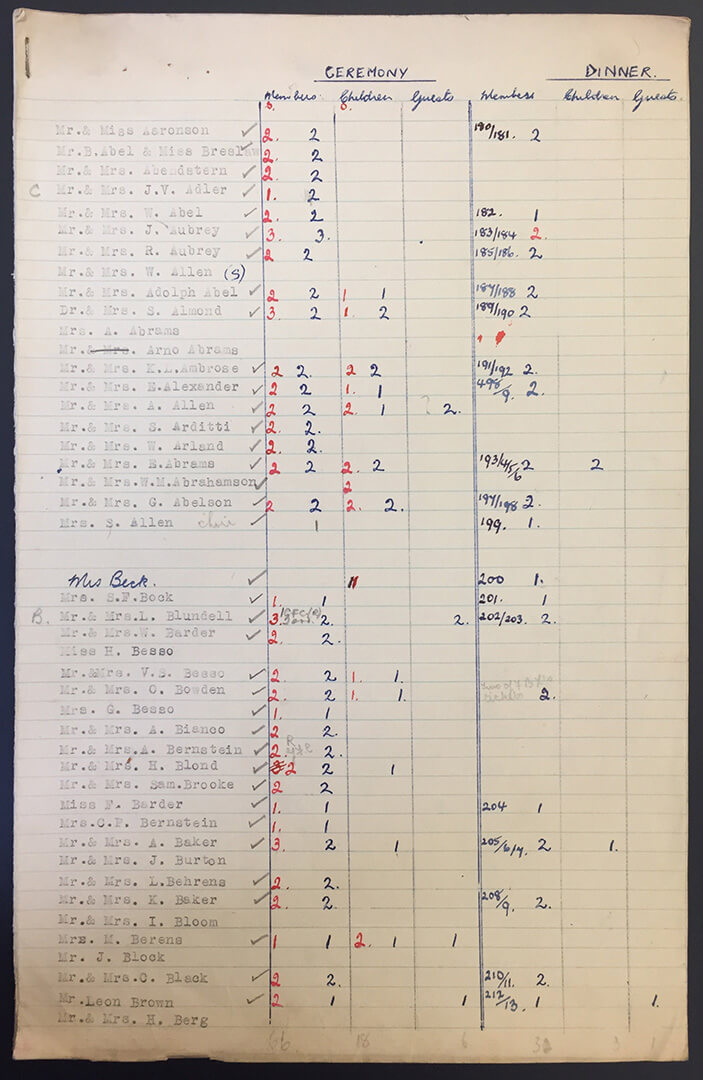 CEREMONY DINNER.
Members Children Guests Members Children Guests.
s. s.
Mr.& Miss Aaronson ✓ 2. 2 180/181. 2
Mr.B.Abel & Miss Breslaw ✓ 2. 2
Mr.& Mrs. Abendstern ✓ 2. 2
C Mr.& Mrs. J.V. Adler ✓ 1. 2
Mr.& Mrs. W. Abel ✓ 2. 2 182. 1
Mr.& Mrs. J. Aubrey ✓ 3. 3. 183/184 2.
Mr.& Mrs. R. Aubrey ✓ 2 2 185/186. 2
Mr.& Mrs. W. Allen (S)
Mr.& Mrs. Adolph Abel ✓ 2 2 1 1 187/188 2
Dr.& Mrs. S. Almond ✓ 3. 2 1. 2 189/190 2
Mrs. A. Abrams
Mr.& Mrs. Arno Abrams
Mr.& Mrs. K.L.Ambrose ✓ 2 2. 2 2 191/192 2.
Mr.& Mrs. E.Alexander ✓ 2 2 1. 1 498/9. 2.
Mr.& Mrs. A. Allen ✓ 2 2 2. 1 2.
Mr.& Mrs. S. Arditti ✓ 2. 2.
Mr.& Mrs. W. Arland ✓ 2. 2.
Mr.& Mrs. E.Abrams ✓ 2 2 2. 2 193/4/5/6 2 2
Mr.& Mrs.W.M.Abrahamson ✓ 2
Mr.& Mrs. G. Abelson ✓ 2 2 2. 2. 197/198 2.
Mrs. S. Allen ✓ 1 199. 1.
Mrs Beck. ✓ 200 1.
Mrs. S.F.Bock ✓ 1. 1 201. 1
B. Mr.& Mrs.L. Blundell ✓ 3. 2. 2. 202/203. 2.
Mr.& Mrs.W. Barder ✓ 2. 2.
Miss H. Besso
Mr.&Mrs. V.S. Besso ✓ 2. 2 1. 1.
Mr.& Mrs. O. Bowden ✓ 2. 2 1. 1. 2.
Mrs. G. Besso ✓ 1. 1
Mr.& Mrs. A. Bianco ✓ 2 2.
Mr.& Mrs.A. Bernstein ✓ 2. 2.
Mr.& Mrs. H. Blond ✓ 2 2 1
Mr.& Mrs. Sam.Brooke ✓ 2 2
Miss F. Barder ✓ 1. 1 204 1
Mrs.C.P. Bernstein ✓ 1. 1
Mr.& Mrs. A. Baker ✓ 3. 2 1 205/6/7. 2 1.
Mr.& Mrs. J. Burton
Mr.& Mrs. L.Behrens ✓ 2. 2.
Mr.& Mrs. K. Baker ✓ 2. 2. 208/9. 2.
Mr.& Mrs. I. Bloom
Mrs. M. Berens ✓ 1 1 2. 1 1
Mr. J. Block
Mr.& Mrs.C. Black ✓ 2 2. 210/11. 2.
Mr.Leon Brown ✓ 2 1 1 212/13. 1 1.
Mr.& Mrs. H. Berg
66 18 6 32 3 1